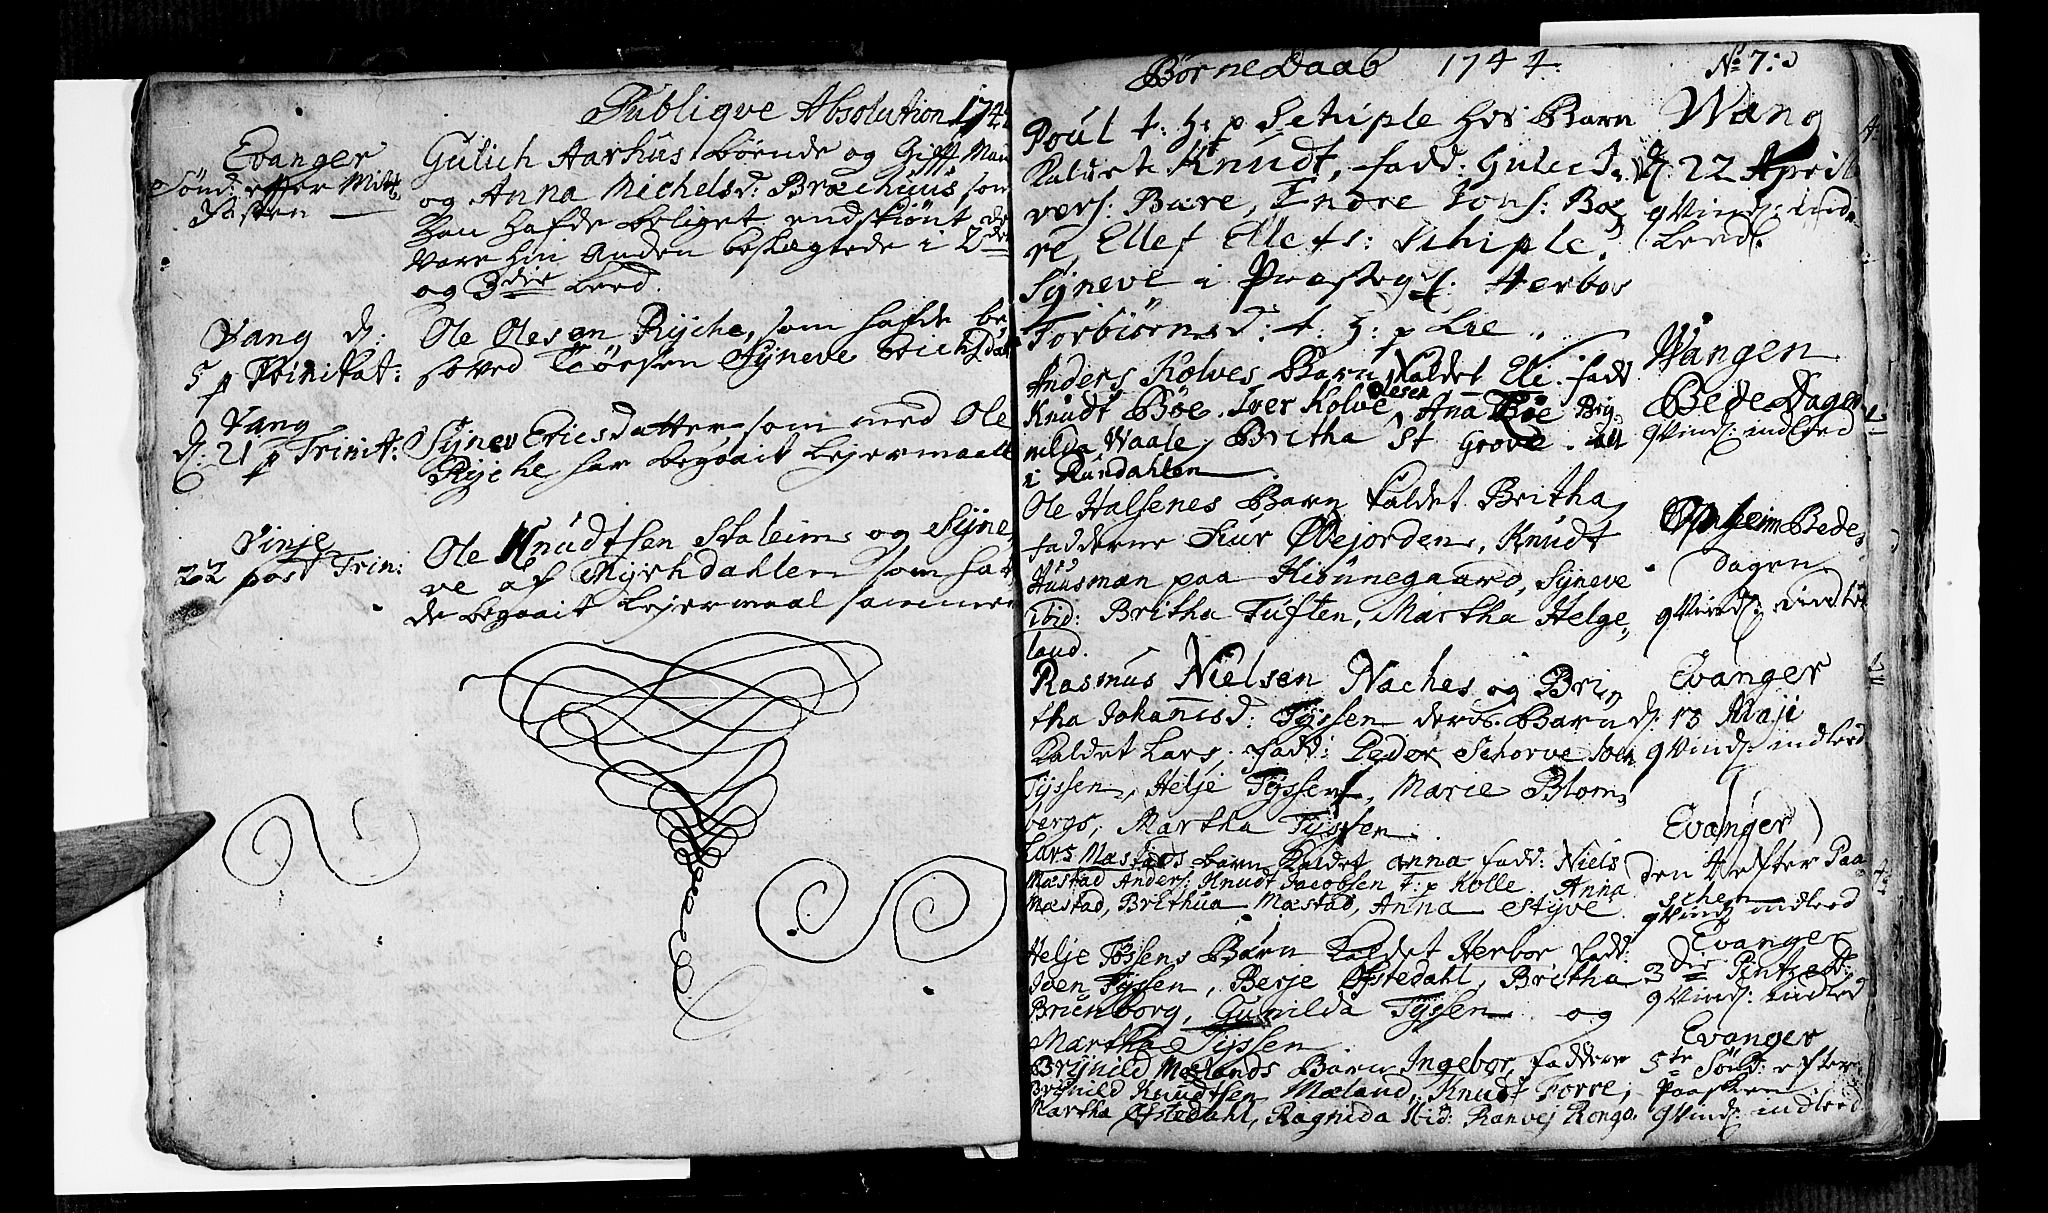 Publiqve Absolution 174
Evanger
Sønd: effter Mitt
Fasten
Gulich Aarhus boende og Gifft Man
og Anna Michelsd: Bræchhuus, som
han hafde beliget endskiønt de
vare hin Anden beslægtede i 2den
og 3die Leed.
Vang d:
5 p Trinitat:
Ole Olesen Ryche, som hafde be
soved Tøesen Syneve Erichsdat
Vang
d: 21 p Trinit:
Synev Ericsdatter som med Ole
Ryche har begaait Lejermaall
Vinje
22 post Trin:
Ole Knudtsen Staleim og Syne
ve af Myrhdahlen som haf
de begaait Lejermaal sammen
Børne Daab 1744
No 7:
Poul t: h: p Schiple hos Barn
Kaldet Knudt, fadd: Gulic I
vers: Bære, Endre Jons: Bæ
re, Ellef Ellefs: Schiple,
Syneve i Præsteg: Herbor
Torbiørnsd: t: h: p Lie
Wang
d: 22 April
qvind: indl
Leed
Anders Kolves Barn Kaldet Eli. fadd
Knudt Bøe. Iver Kolve, Ana Bøe Bry
nilda Waale, Britha St Grove. all
i Rundahlen
Wangen
Bede Dagen
qvind: indleed
Ole Halsenes Barn Kaldet Britha
fadderne Siur Øvejorden, Knudt
Huusman paa Hiønnegaard, Syneve
ibid: Britha Tuften, Martha Helge,
land.
Opheim Bede,
Dagen
qvind: indle
Rasmus Nielsen Naches og Bri
tha Johannsd: Tyssen deres Barn
Kaldet Lars, fadd: Peder Schorve Iven
Tyssen, Helje Tyssen, Marie Blom,
bergs, Martha Tyssen
Evanger
d: 13 Maji
qvind: indleed
Lars Mæstads barn Kaldet anna fadd: Niels
Mæstad Anders: Knudt Jacobsen t: p Kolle. Anna
Mæstad, Brithua Mæstad, Anna Styve
Evanger
den 4 efter Paa
schen
qvind indleed
Helje Tøssens Barn Kaldet Herbor, fadd:
Iven Tyssen, Berje Øfstedahl, Britha
Brunborg, Gunilda Tyssen og
Martha Tyssen
Evanger
3die Pintzed:
qvind: indled
Brynild Mælands Barn Ingebor, faddere
Brynild Knudtsen Mæland, Knudt Horre,
Martha Øfstedahl, Ragnida Ibid: Ranvej Ronge
Evanger
5te Sønd: efter
Paaschen
qvind: indleed